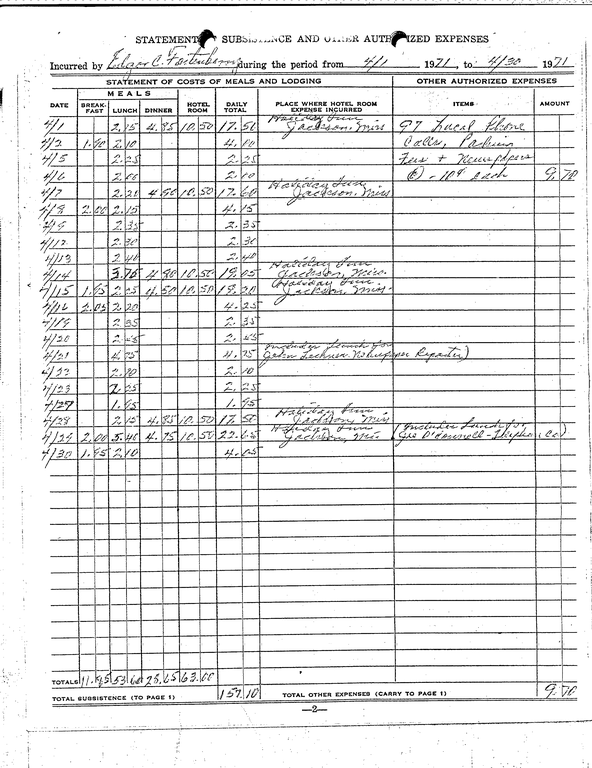 STATEMENT SUBSISTENCE AND OTHER AUTHORIZED EXPENSES
Incurred by Edgar C. Fortenberry during the period from 4/1 1971, to 4/30 1971
STATEMENT OF COSTS OF MEALS AND LODGING OTHER AUTHORIZED EXPENSES
MEALS
DATE BREAK-FAST LUNCH DINNER HOTEL ROOM DAILY TOTAL PLACE WHERE HOTEL ROOM EXPENSE INCURRED ITEMS AMOUNT
4/1 2.15 4.85 10.50 17.50 Holiday Inn Jackson, Miss 97 Local Phone
4/2 1.90 2.10 4.10 Calls, Parking
4/5 2.25 2.25 Fees + Newspapers
4/6 2.10 @ - 10¢ each 9.70
4/7 2.20 4.90 10.50 17.60 Holiday Inn Jackson, Miss
4/8 2.00 2.15 4.15
4/9 2.35 2.35
4/12 2.30 2.30
4/13 2.40 2.40
4/14 3.75 4.80 10.50 19.05 Holiday Inn Jackson, Miss.
4/15 1.95 2.25 4.50 10.50 19.20 Holiday Inn Jackson, Miss
4/16 2.05 2.20 4.25
4/19 2.35 2.35
4/20 2.45 2.45
4/21 4.75 4.75 (Includes Lunch for John Newspaper Reporter)
4/22 2.10 2.10
4/23 2.25 2.25
4/27 1.95 1.95
4/28 2.15 4.85 10.50 17.50 Holiday Inn Jackson, Miss
4/29 2.00 5.40 4.75 10.50 22.65 Holiday Inn Jackson, Miss (Includes Lunch for Joe O'Donnell - Telephone Co.)
4/30 1.95 2.10 4.05
TOTALS 11.85 53.60 28.65 63.00
TOTAL SUBSISTENCE (TO PAGE 1) 157.10 TOTAL OTHER EXPENSES (CARRY TO PAGE 1) 9.70
—2—